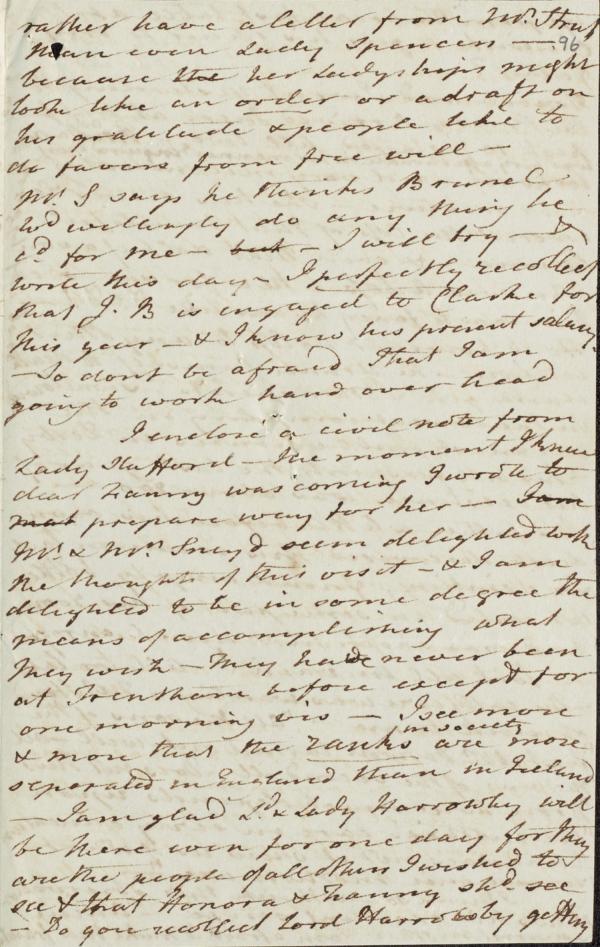 rather have a letter from Mr. Strutt
96
than even Lady Spencers —
because the her Ladyships might
look like an order or a draft on
his gratitude & people like to
do favors from free will —
Mr. S says he thinks Brunel
wd willingly do any thing he
cd for me — but — I will try — &
write this day — I perfectly recollect
that J. B is engaged to Clarke for
this year — & I know his present salary
— So dont be afraid that I am
going to work hand over head
I enclose a civil note from
Lady Stafford — The moment I knew
dear Fanny was coming I wrote to
prepare way for her — I am
Mr. & Mrs. Sneyd seem delighted with
the thoughts of this visit — & I am
delighted to be in some degree the
means of accomplishing what
they wish — They have never been
at Trentham before except for
one morning vis — I see more
& more that the ranks in society are more
separated in England than in Ireland
— I am glad Ld. & Lady Harrowby will
be there even for one day for they
are the people of all others I wished to
see & that Honora & Fanny shd. see
— Do you recollect Lord Harrowby getting